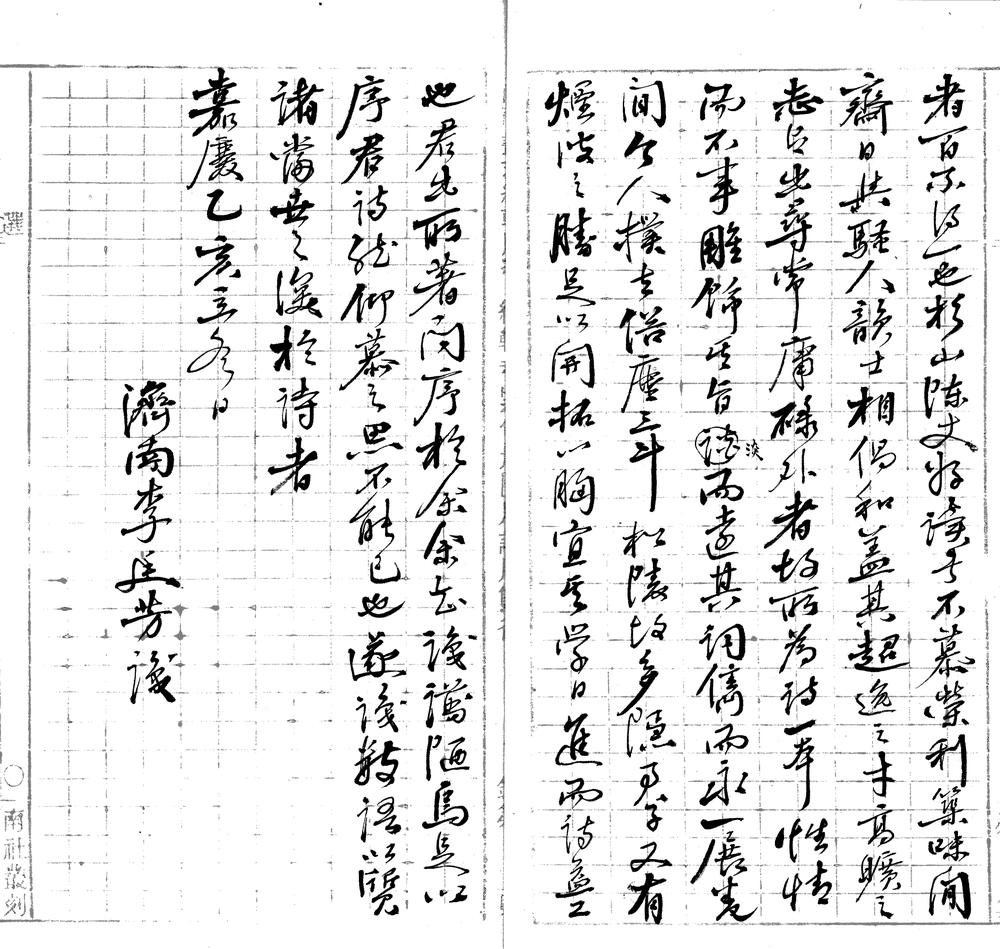 者百不得一也杉山陈丈好讀書不慕榮利築味闲
齋日與騷人韻士相倡和盖其超逸之才高曠之
志已出尋常庸碌外者故所為詩一本性情
而不事雕飾其旨談淡而遠其詞雋而永一展卷
间令人撲去俗塵三斗松陵故多隱君子又有
煙波之勝足以開拓心胸宜其学日進而詩益工
也君出所著问序於余余之譾陋烏足以
序君詩然仰慕之思不能已也遂識數語以覧
諸當世之深於詩者
嘉慶乙亥立冬日
濟南李廷芳識
選
南社叢刻